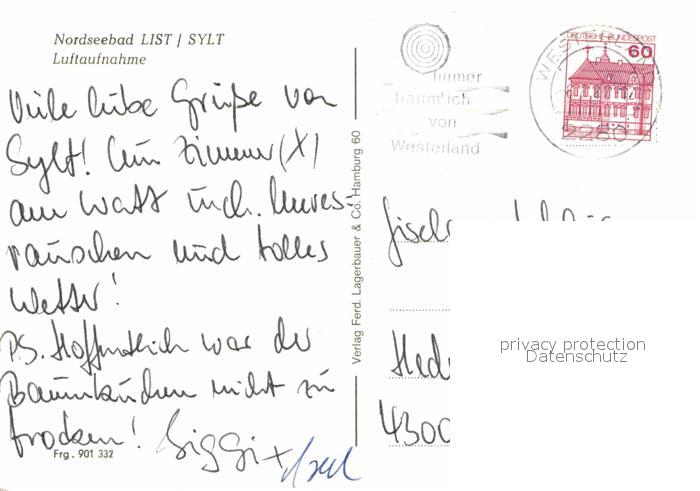 Nordseebad LIST / SYLT
Luftaufnahme
Viele liebe Grüße von
Sylt! Ein Zimmer (X)
am Watt incl. Meeres-
rauschen und tolles
Wetter!
P.S. Hoffentlich war der
Baumkuchen nicht zu
trocken! Siggi + Axel
Frg. 901 332
Verlag Ferd. Lagerbauer & Co. Hamburg 60
immer
traum'ich
von
Westerland
DEUTSCHE BUNDESPOST
60
2280
privacy protection
Datenschutz
4300